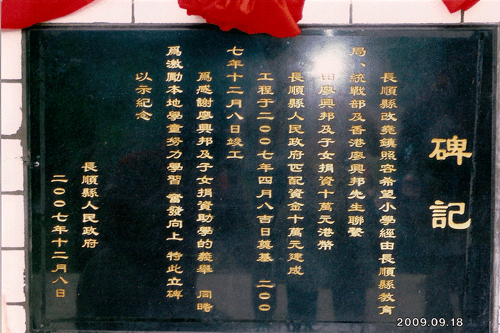 碑記
長順縣改堯鎮照容希望小學經由長順縣教育
局、統戰部及香港廖興邦先生聯繫
由廖興邦及子女捐資十萬元港幣
長順縣人民政府匹配資金十萬元建成
工程于二00七年四月八吉日奠基 二00
七年十二月八日竣工
爲感謝廖興邦及子女捐資助學的義舉 同時
爲激勵本地學童努力學習 奮發向上 特此立碑
以示紀念
長順縣人民政府
二00七年十二月八日
2009.09.18